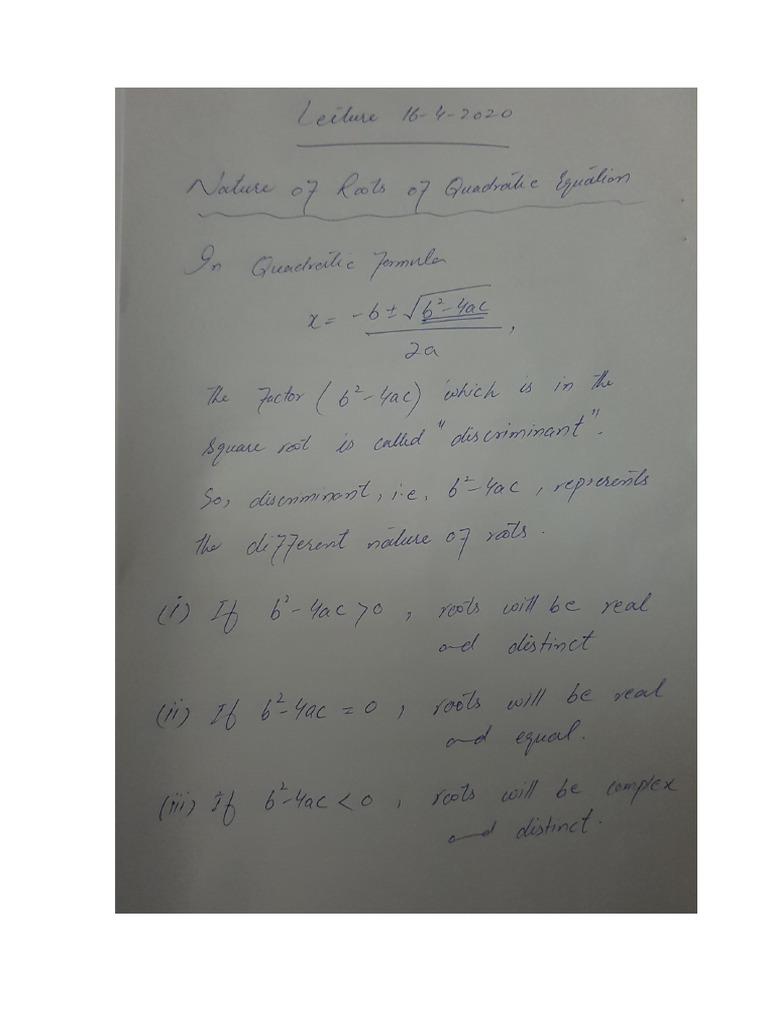 Lecture 16-4-2020
Nature of Roots of Quadratic Equation
In Quadratic Formula
x = -b ± √(b²-4ac) / 2a ,
The Factor (b²-4ac) which is in the
square root is called "discriminant".
So, discriminant, i.e, b²-4ac, represents
the different nature of roots.
(i) If b²-4ac > 0 , roots will be real
and distinct
(ii) If b²-4ac = 0 , roots will be real
and equal.
(iii) If b²-4ac < 0 , roots will be complex
and distinct.